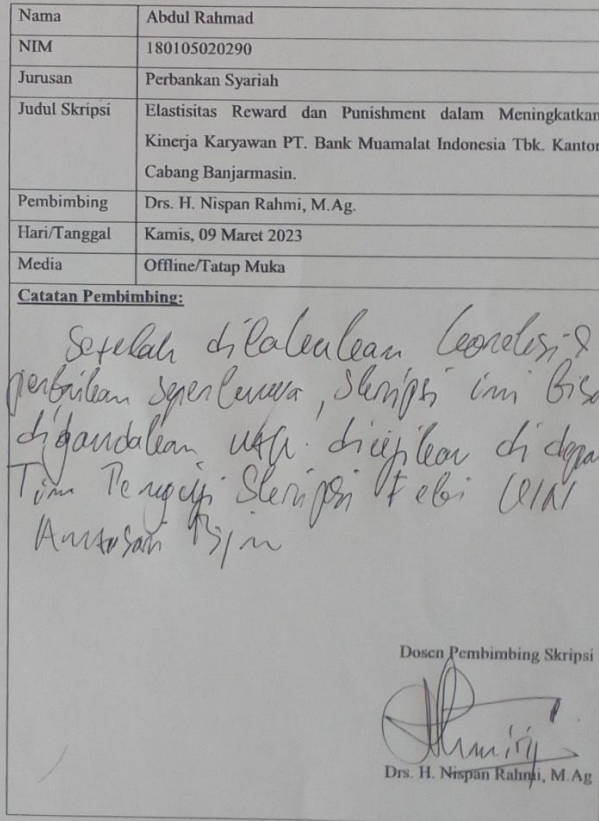 Nama Abdul Rahmad
NIM 180105020290
Jurusan Perbankan Syariah
Judul Skripsi Elastisitas Reward dan Punishment dalam Meningkatkan
Kinerja Karyawan PT. Bank Muamalat Indonesia Tbk. Kantor
Cabang Banjarmasin.
Pembimbing Drs. H. Nispan Rahmi, M.Ag.
Hari/Tanggal Kamis, 09 Maret 2023
Media Offline/Tatap Muka
Catatan Pembimbing:
Setelah dilakukan koreksi &
perbaikan seperlunya, Skripsi ini bisa
digandakan utk. diujikan di depa
Tim Penguji Skripsi Febi UIN
Antasari Bjm
Dosen Pembimbing Skripsi
Drs. H. Nispan Rahmi, M.Ag